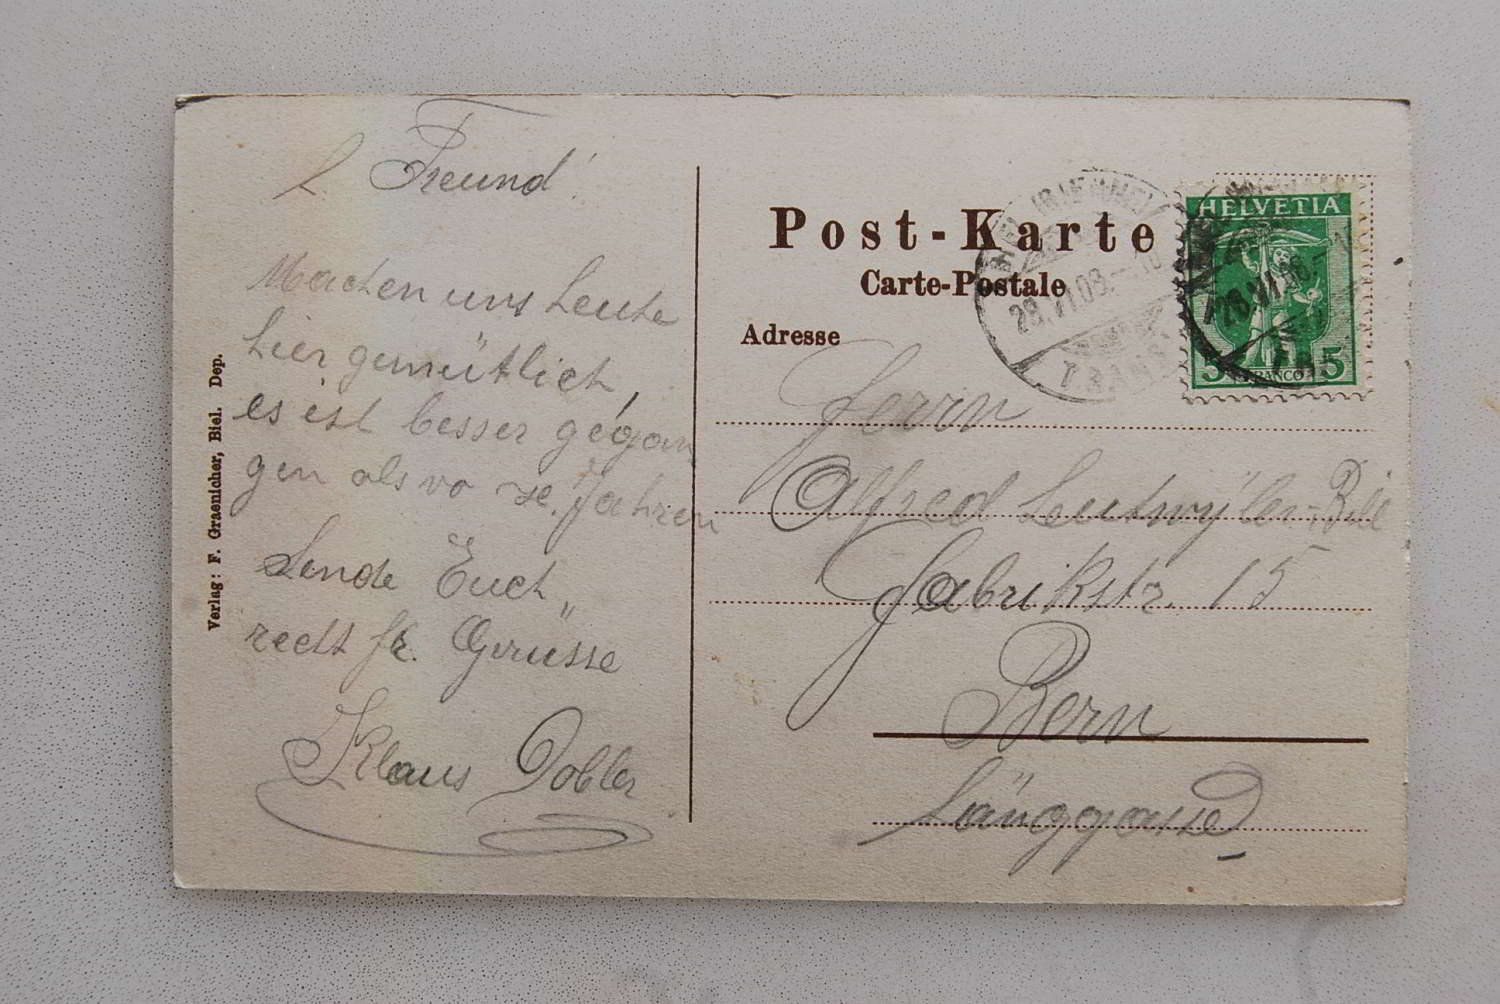 L. Freund!
Machen uns heute
hier gemütlich
es ist besser gegan
gen als vo Jahren
Sende Euch
recht fr. Grüsse
Klaus Dobler
Verlag: F. Graenicher, Biel. Dep.
Post-Karte
Carte-Postale
Adresse
HELVETIA
5 FRANCO 5
28.VI.08.
TRANS
28.VI.08.
Herrn
Alfred Leutwyler-
Fabrikstr. 15
Bern
Länggasse